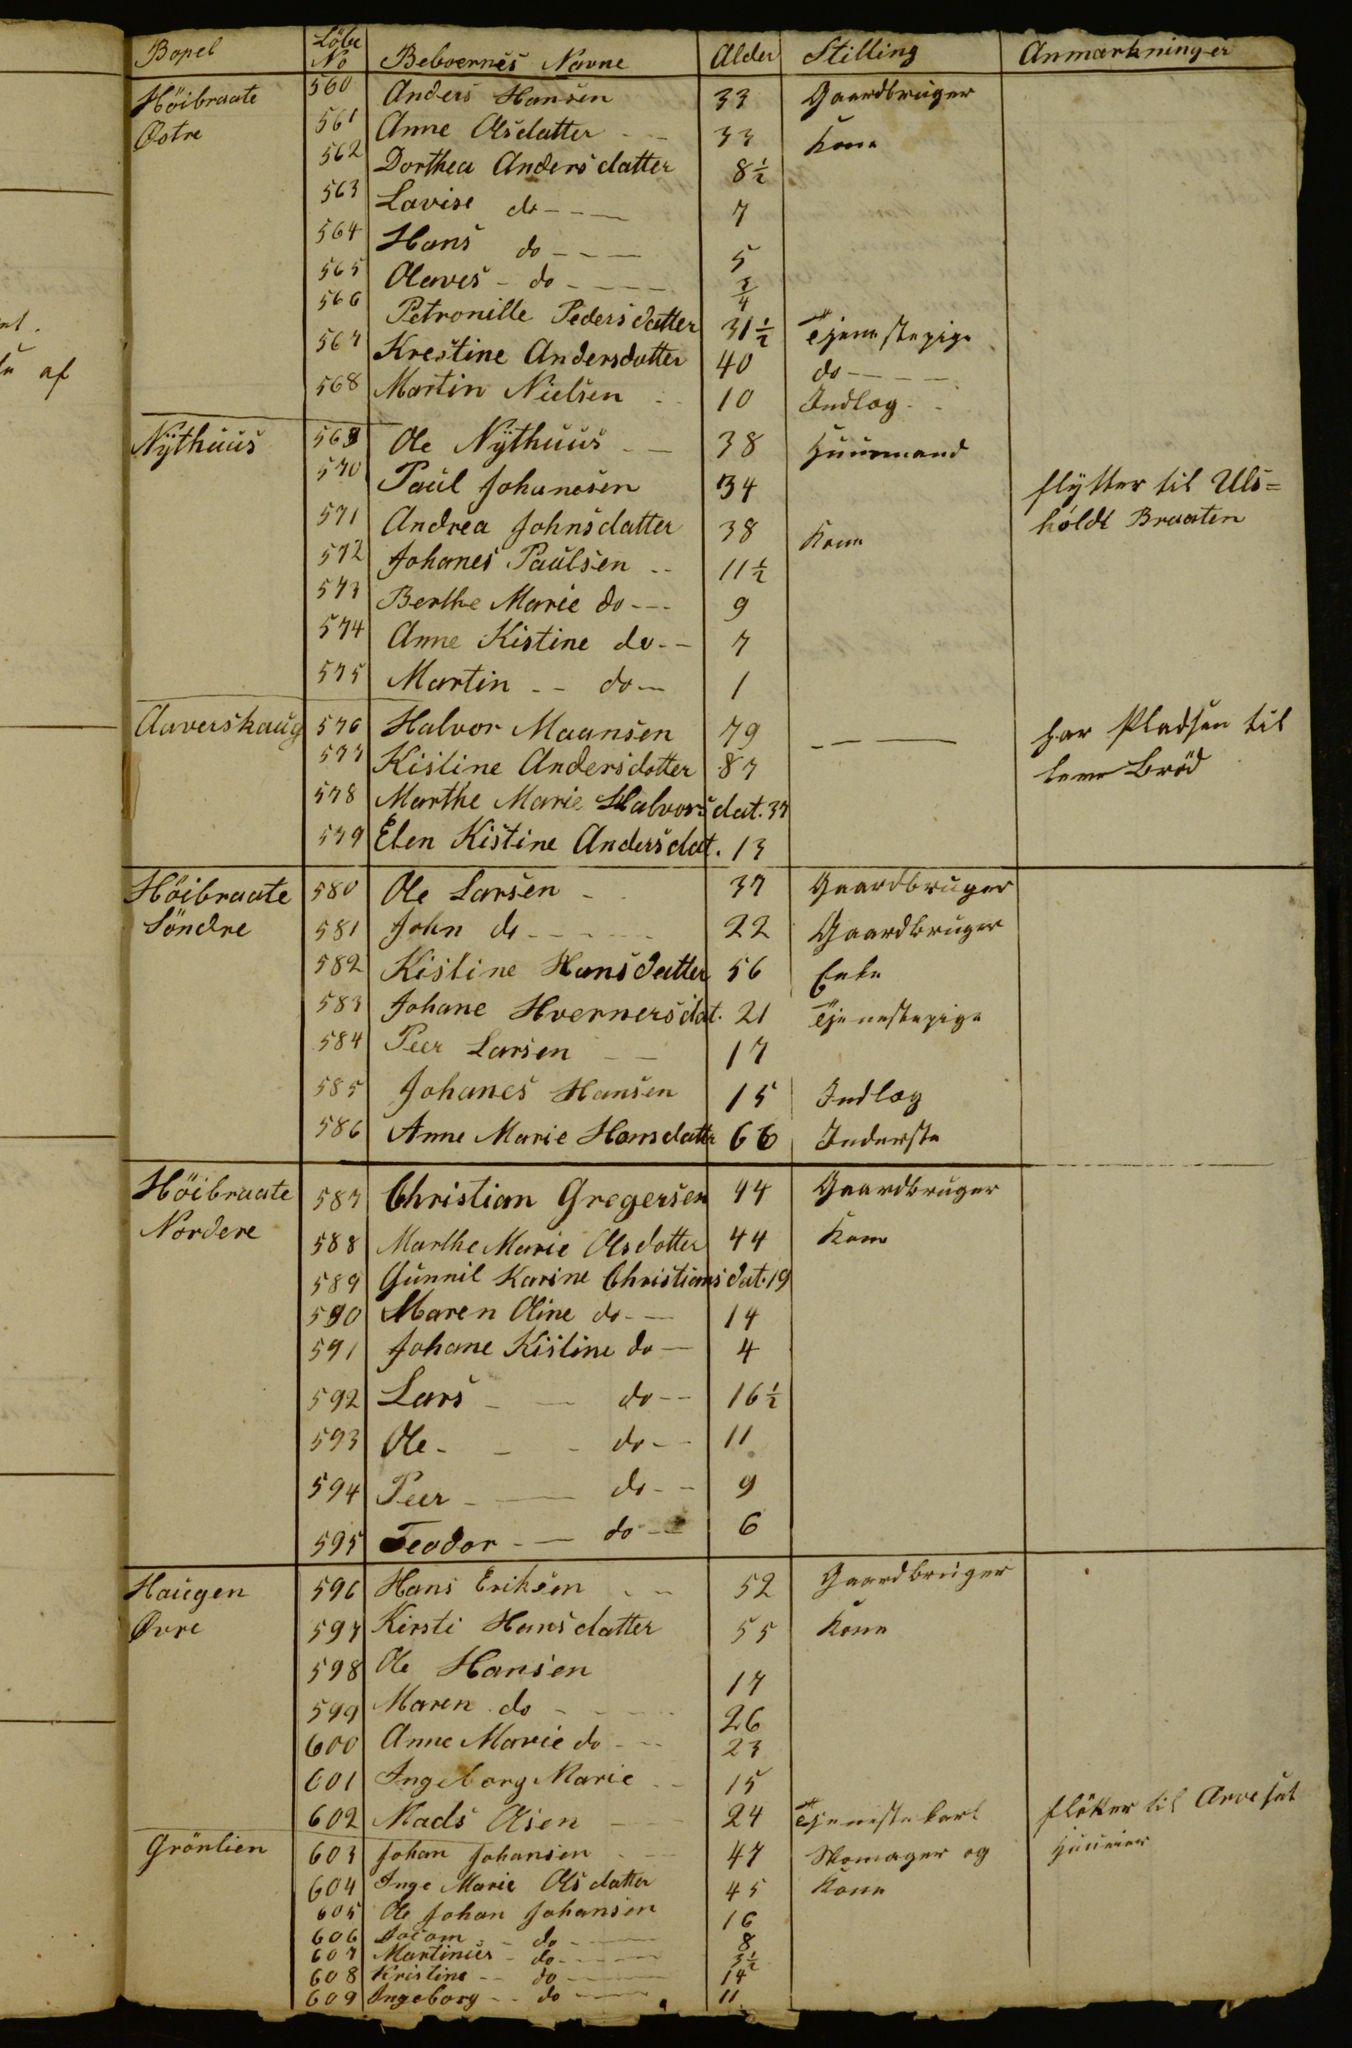 Bopel Löbe No Beboernes Navne Alder Stilling Anmærkninger
Höibraate 560 Anders Hansen 33 Gaardbruger
Østre 561 Anne Olsdatter 33 Kone
562 Dorthea Andersdatter 8½
563 Lovise do 7
564 Hans do 5
565 Olaves do ¾
566 Petronille Pedersdatter 31½ Tjenestepige
567 Krestine Andersdatter 40 do
568 Martin Nielsen 10 Indlæg
Nÿthuus 569 Ole Nÿthuus 38 Huusmand
570 Paul Johanesen 34 flÿtter til Uls=
571 Andrea Johnsdatter 38 Kone holdt Braaten
572 Johanes Paulsen 11½
573 Berthe Marie do 9
574 Anne Kistine do 7
575 Martin do 1
Aaverskaug 576 Halvor Maansen 79 har Pladsen til
577 Kistine Andersdatter 87 leve Bröd
578 Marthe Marie Halvorsdat. 37
579 Elen Kistine Andersdat. 13
Höibraate 580 Ole Larsen 37 Gaardbruger
Söndre 581 John do 22 Gaardbruger
582 Kistine Hansdatter 56 Enke
583 Johane Hvernersdat. 21 Tjenestepige
584 Peer Larsen 17
585 Johanes Hansen 15 Indlæg
586 Anne Marie Hansdatter 66 Inderste
Höibraate 587 Christian Gregersen 44 Gaardbruger
Nordere 588 Marthe Marie Olsdatter 44 Kone
589 Gunnil Karine Christiansdat. 19
590 Maren Oline do 14
591 Johane Kistine do 4
592 Lars do 16½
593 Ole do 11
594 Peer do 9
595 Teodor do 6
Haugen 596 Hans Eriksen 52 Gaardbruger
Øvre 597 Kirsti Hansdatter 55 Kone
598 Ole Hansen 17
599 Maren do 26
600 Anne Marie do 23
601 Ingeborg Marie 15
602 Mads Olsen 24 Tjenestekarl flötter til Arveset
Grönlien 603 Johan Johansen 47 Skomager og Huuseier
604 Inge Marie Olsdatter 45 Kone
605 Ole Johan Johansen 16
606 Jocom do 8
607 Martinus do 3½
608 Kristine do 14
609 Ingeborg do 11
af